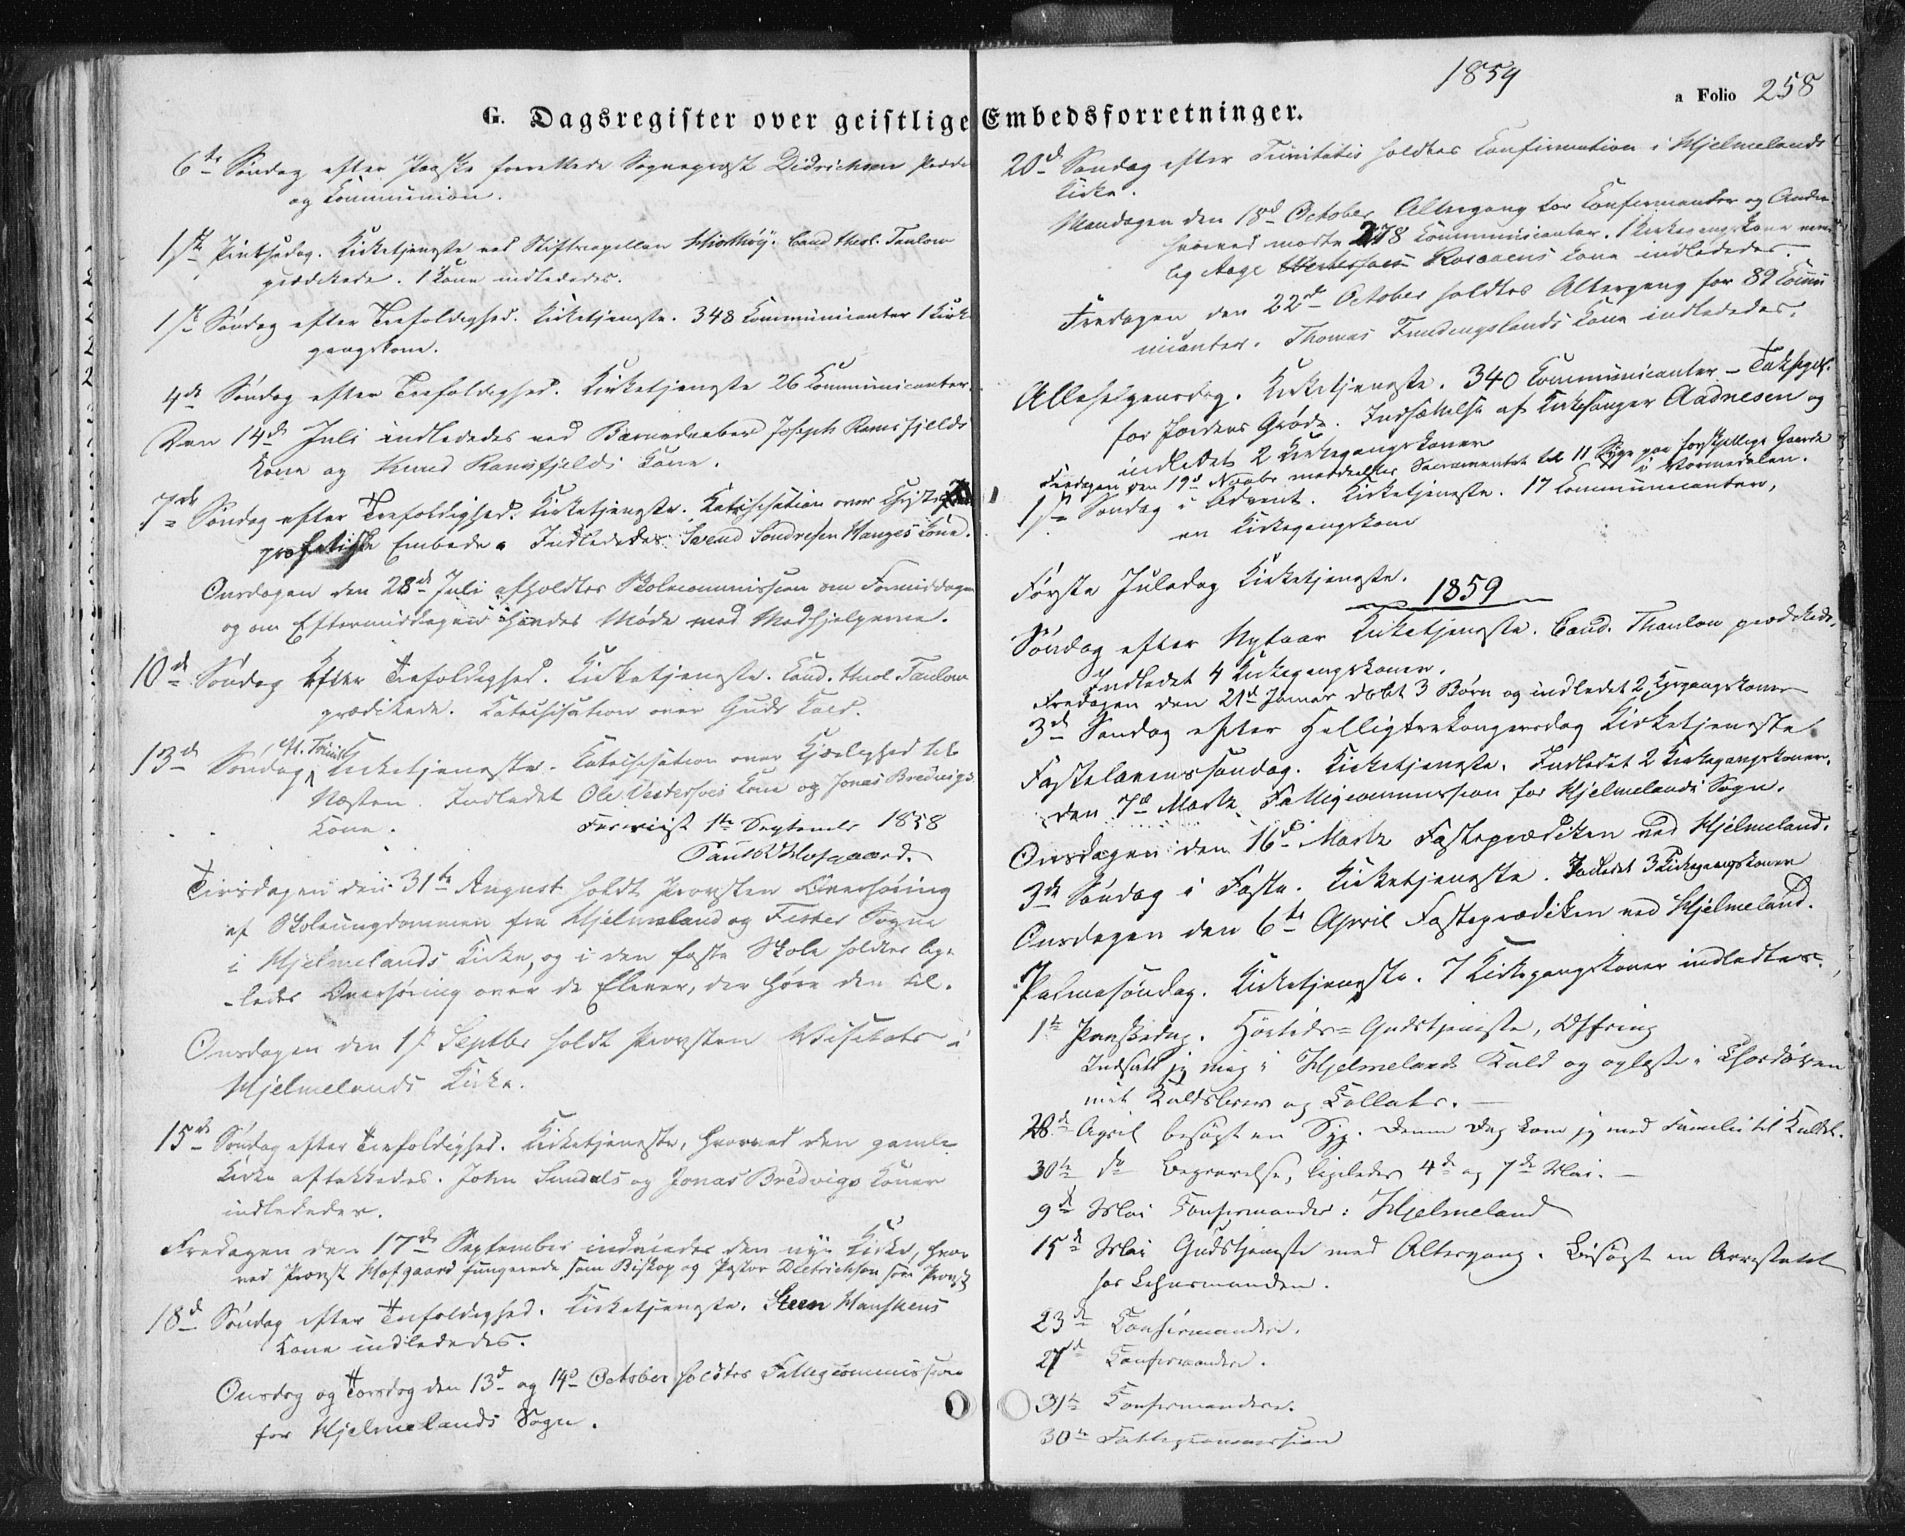 1859
a Folio 258
G. Dagsregister over geistlige Embedsforretninger.
6te Søndag efter Paaske forrettede Sogneprest Didrichsen Præd
og Communion.
1ste Pintsedag. Kirketjeneste ved Stiftscapellan Hiorthøy. Cand. theol. Taulow
prædikede. 1 Kone indlededes.
1ste Søndag efter Trefoldighed. Kirketjeneste. 348 Communicanter 1 Kirke
gangskone.
4de Søndag efter Trefoldighed. Kirketjeneste 26 Communicanter.
Den 14de Juli indlededes ved Barnedaaben Joseph Ramsfjelds
Kone og Knud Ramsfjelds Kone.
7de Søndag efter Trefoldighed. Kirketjeneste. Katechisation over Christi
profetiske Embede. Indlededes Svend Sondresen Hauges Kone.
Onsdagen den 28de Juli afholdtes Skolecommission om Formiddagen
og om Eftermiddagen Møde med Medhjelperne.
10de Søndag efter Trefoldighed. Kirketjeneste. Cand. theol Taulow
prædikede. Katechisation over Guds Kald.
13de Søndag eft. Trinit. Kirketjeneste. Katechisation over Kjærlighed til
Næsten. Indledet Ole Vestersøes Kone og Jonas Bredvigs
Kone.
Foreviist 1ste September 1858
Hofgaard.
Tirsdagen den 31te August holdt Provsten Overhøring
af Skoleungdommen fra Hjelmeland og Fister Sogne
i Hjelmelands Kirke, og i den faste Skole holdtes lige
-ledes Overhøring over de Elever, der høre den til.
Onsdagen den 1st Septbr holdt Provsten Visitats i
Hjelmelands Kirke.
15de Søndag efter Trefoldighed. Kirketjeneste, hvorved den gamle
Kirke aftakkedes. John Sundals og Jonas Bredvigs Koner
indlededes.
Fredagen den 17de September indviedes den nye Kirke, hvor
ved Provst Hofgaard fungerede som Biskop og Pastor Dietrichson som Provst
18de Søndag efter Trefoldighed. Kirketjeneste. Steen Hauskens
Kone indlededes.
Onsdag og Torsdag den 13d og 14d October holdtes Fattigcommission
for Hjelmelands Sogn.
20de Søndag efter Trinitatis holdtes Confirmation i Hjelmelands
Kirke.
Mandagen den 18d October Altergang for Confirmander og Andre
hvorved mødte 278 Communicanter. 1 Kirkegangskone nem
lig Aage Kone indlededes.
Fredagen den 22de October holdtes Altergang for 89 Commu
nicanter. Thomas Fundingslands Kone indlededes.
Allehelgensdag. Kirketjeneste. 340 Communicanter – Taksigels.
for Jordens Grøde. Indsættelse af Kirkesanger Aadnesen og
indledet 2 Kirkegangskoner
Fredagen den 19d Novbr meddeltes Sacramentet til 11 Syge paa forskjellige Gaarde
i Vormedalen.
1ste Søndag i Advent. Kirketjeneste. 17 Communicanter,
en Kirkegangskone
Første Juledag Kirketjeneste.
1859
Søndag efter Nytaar Kirketjeneste. Cand. Thaulow prædikede.
Indledet 4 Kirkegangskoner.
Fredagen den 21d Januar døbt 3 Børn og indledet 2 Kirkegangskoner
3de Søndag efter Helligtrekongersdag Kirketjeneste
Fastelavenssøndag. Kirketjeneste. Indledet 2 Kirkegangskoner.
Den 7de Marts Fattigcommission for Hjelmelands Sogn.
Onsdagen den 16de Marts Fasteprædiken ved Hjelmeland.
3de Søndag i Faste. Kirketjeneste. Indledet 3 Kirkegangskoner
Onsdagen den 6te April Fasteprædiken ved Hjelmeland.
Palmesøndag. Kirketjeneste. 7 Kirkegangskoner indledtes.
1te Paaskedag. Høitids= Gudstjeneste, Offring
Indsatt jeg mig i Hjelmelands Kald og oplæste i Chordøren
mit Kaldsbrev og Collats. –
28de April besøgt en Syg. Denne Dag kom jeg med Familie til Kaldet.
30te do Begravelse, ligeledes 4de og 7de Mai. –
9de Mai Confirmander i Hjelmeland
15de Mai Gudstjeneste med Altergang. Besøgt en Arrestatet
hos Lehnsmanden.
23de Confirmander.
27de Confirmander.
31te Confirmander.
30te Fattigcommission